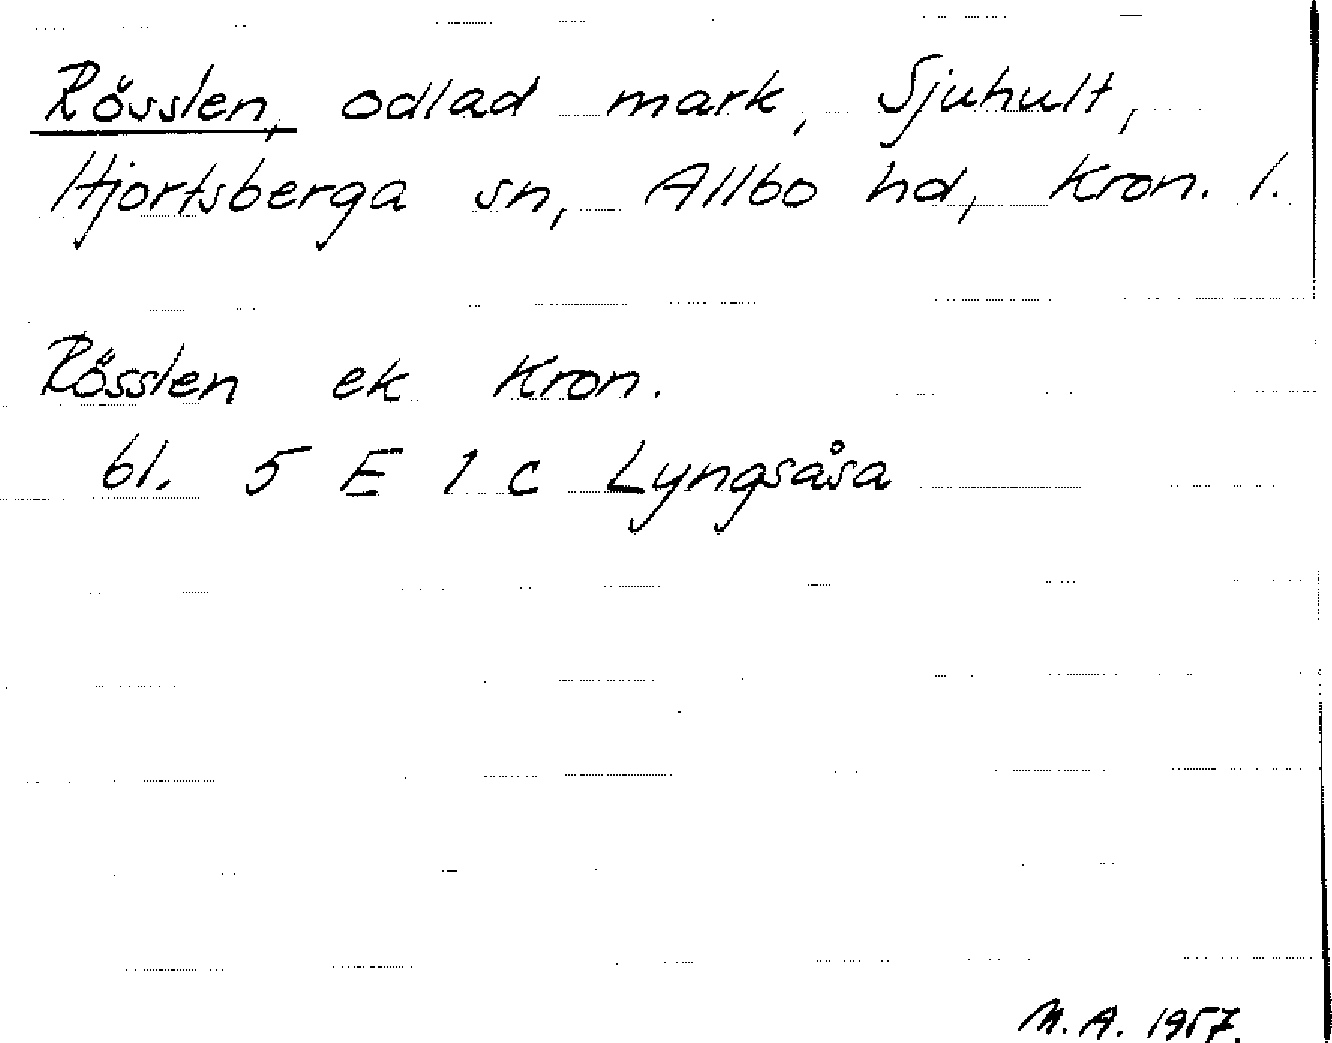 Rösslen, odlad mark, Sjuhult,
Hjortsberga sn, Allbo hd, Kron. l.
Rösslen ek Kron.
bl. 5 E 1 c Lyngsåsa
M. A. 1957.